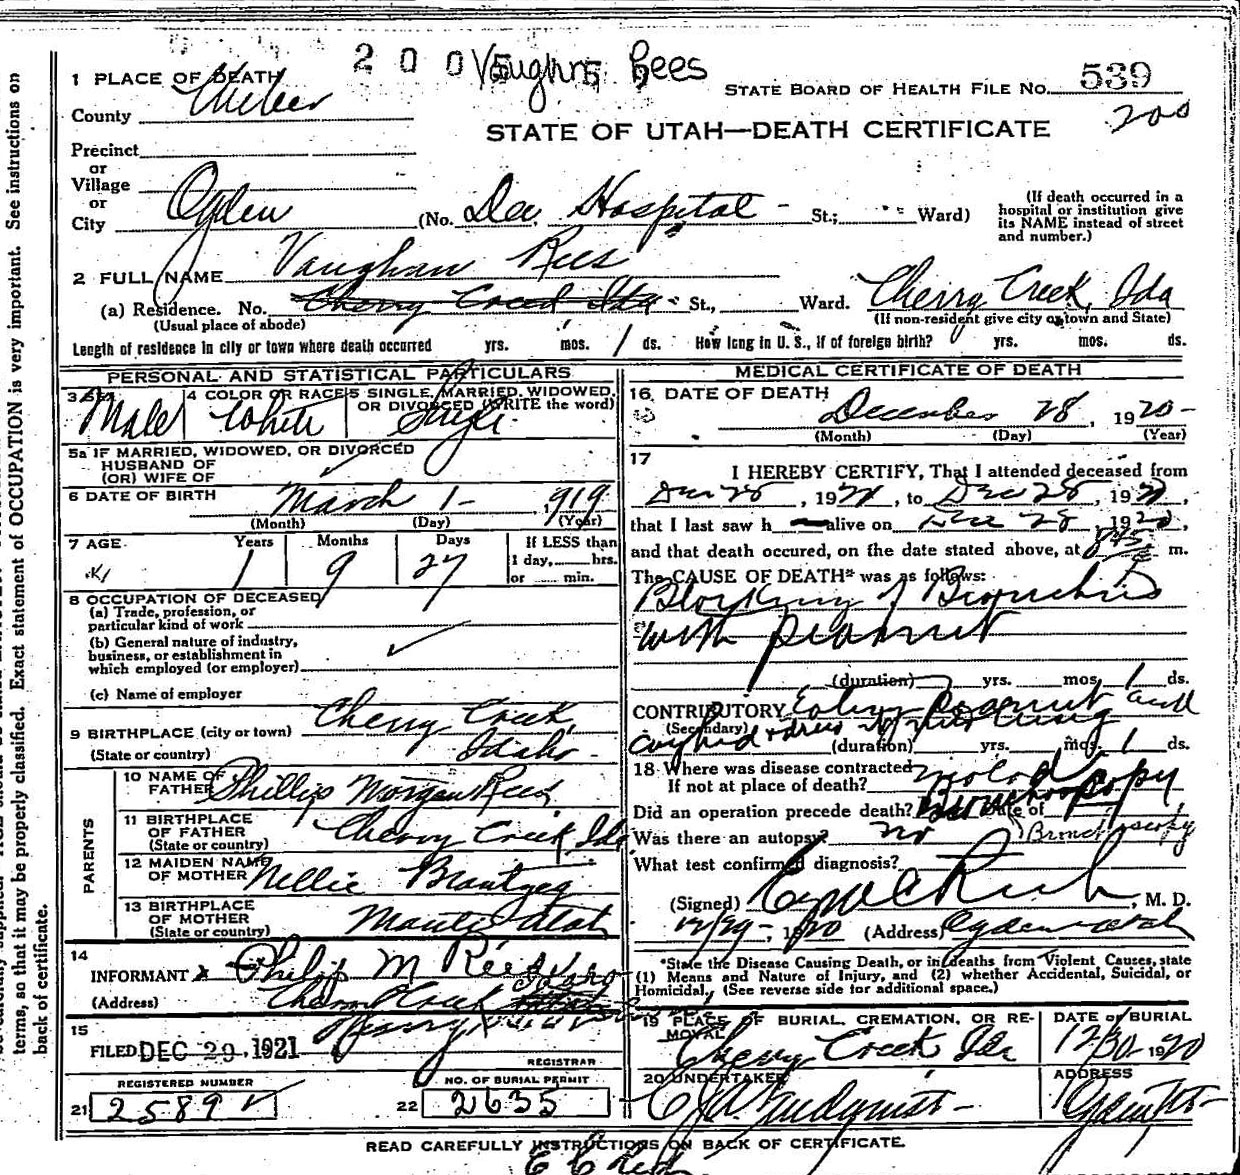 2 0 0 Vaughn Rees
STATE BOARD OF HEALTH FILE NO. 539
200
STATE OF UTAH—DEATH CERTIFICATE
1 PLACE OF DEATH
County Weber
Precinct
or
Village
or
City Ogden (No. Dee Hospital - St.; Ward)
(If death occurred in a
hospital or institution give
its NAME instead of street
and number.)
2 FULL NAME Vaughan Rees
(a) Residence. No. Cherry Creek Ida St., Ward. Cherry Creek, Ida
(Usual place of abode) (If non-resident give city or town and State)
Length of residence in city or town where death occurred yrs. mos. 1 ds. How long in U. S., if of foreign birth? yrs. mos. ds.
PERSONAL AND STATISTICAL PARTICULARS
3 SEX Male
4 COLOR OR RACE White
5 SINGLE, MARRIED, WIDOWED,
OR DIVORCED (WRITE the word)
Single
5a IF MARRIED, WIDOWED, OR DIVORCED
HUSBAND OF
(OR) WIFE OF
6 DATE OF BIRTH March 1 - , 1919
(Month) (Day) (Year)
7 AGE Years Months Days If LESS than
1 9 27 1 day, hrs.
or min.
8 OCCUPATION OF DECEASED
(a) Trade, profession, or
particular kind of work
(b) General nature of industry,
business, or establishment in
which employed (or employer)
(c) Name of employer
9 BIRTHPLACE (city or town) Cherry Creek,
(State or country) Idaho -
PARENTS
10 NAME OF
FATHER Phillip Morgan Rees
11 BIRTHPLACE
OF FATHER Cherry Creek, Ida
(State or country)
12 MAIDEN NAME
OF MOTHER Nellie
13 BIRTHPLACE
OF MOTHER Manti, Utah
(State or country)
14
INFORMANT Philip M Rees
(Address) Cherry Creek Idaho
15
FILED DEC 29, 1921
REGISTRAR
REGISTERED NUMBER
21 2589
NO. OF BURIAL PERMIT
22 2635
MEDICAL CERTIFICATE OF DEATH
16 DATE OF DEATH
December 28, 1920-
(Month) (Day) (Year)
17
I HEREBY CERTIFY, That I attended deceased from
Dec 28, 1920, to Dec 28, 1920,
that I last saw h alive on Dec 28, 1920,
and that death occured, on the date stated above, at 845 m.
The CAUSE OF DEATH* was as follows:
Blocking of Bronchus
with peanut
(duration) yrs. mos. 1 ds.
CONTRIBUTORY Eating Peanut and
(Secondary) coughed + drew it into lung
(duration) yrs. mos. 1 ds.
18 Where was disease contracted
If not at place of death?
Did an operation precede death? Bronchoscopy Date of
Was there an autopsy? no
Bronchoscopy
What test confirmed diagnosis?
(Signed) , M. D.
12/29-, 1920 (Address) Ogden Utah
*State the Disease Causing Death, or in deaths from Violent Causes, state
(1) Means and Nature of Injury, and (2) whether Accidental, Suicidal, or
Homicidal. (See reverse side for additional space.)
19 PLACE OF BURIAL, CREMATION, OR RE-
MOVAL
Cherry Creek Ida
DATE OF BURIAL
12/30 1920
20 UNDERTAKER
ADDRESS
READ CAREFULLY INSTRUCTIONS ON BACK OF CERTIFICATE.
terms, so that it may be properly classified. Exact statement of OCCUPATION is very important. See instructions on
back of certificate.